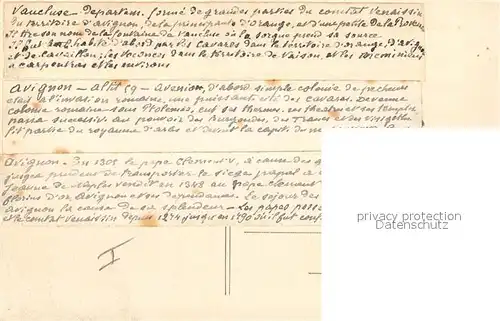 Vaucluse - Departem. formé de grandes parties du comtat Venaissin
du territoire d'avignon, de la principauté d'orange, et d'une petite de la Provence
tire son nom de la fontaine de Vaucluse où la sorgue prend sa source
habité d'abord par les Cavares dans le territoire d'orange, d'avignon
et de cavaillon, les Voconces dans le territoire de Vaison et les
a carpentras et les environs
avignon - altit 59 - avenion, d'abord simple colonie de pecheurs
etait a l'invasion romaine, une puissante cité des Cavares. Devenue
colonie romaine sous Ptolemée, eut ses thermes, son theatre et ses temples
passa successiv. au pouvoir des burgondes, des francs et des visigoths
fit partie du royaume d'arles et devint la capit. du
avignon - En 1305 le pape Clement V, à cause des
jugea prudent de transporter le siege papal a
Jeanne de Naples vendit en 1348 au pape clement
florins d'or avignon et ses dependances. Le sejour des
avignon la cause de sa splendeur - Les papes
et le comtat venaissin depuis 1274 jusqu'en 1790 où il fut
I
privacy protection
Datenschutz